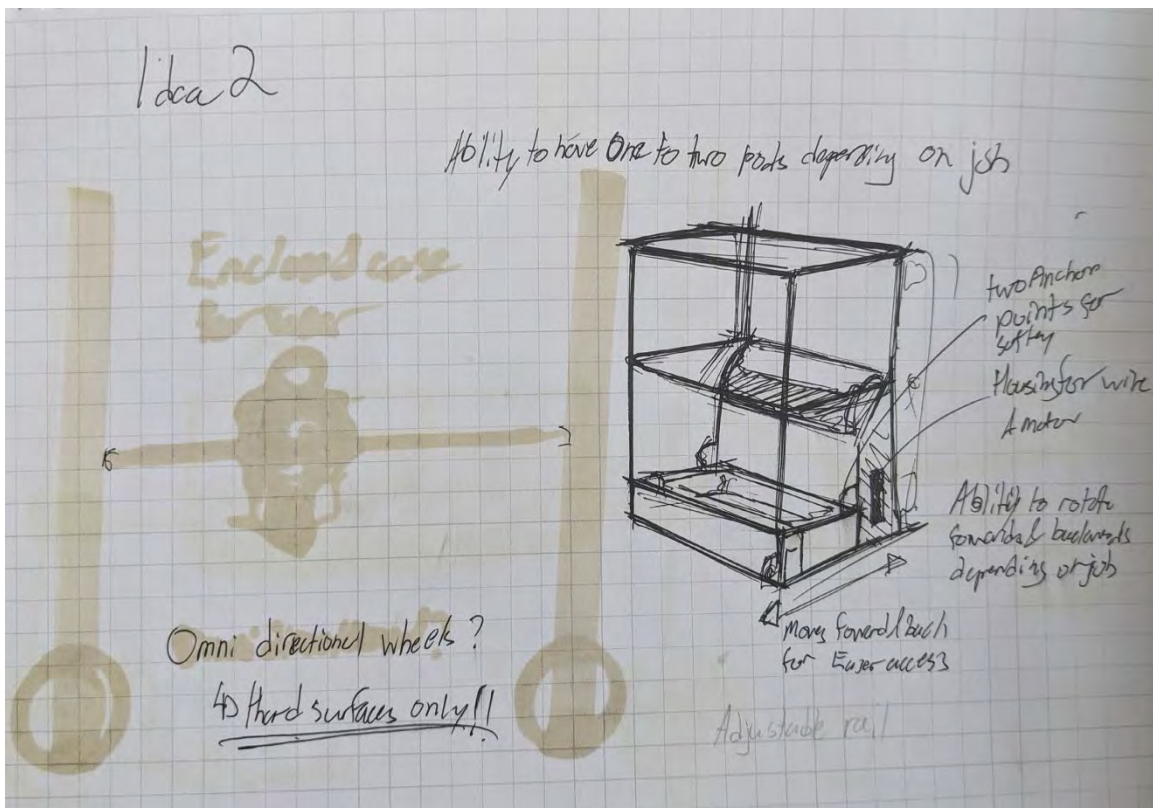 Idea 2
Ability to have One to two pods depending on job
Enclosed case
for user
two Anchor
points for
saftey
Housing for wire
& motor
Ability to rotate
forwards & backwards
depending on job
Moves foward/back
for Easer access
Omni directional wheels?
↳ Hard surfaces only!!
Adjustable rail